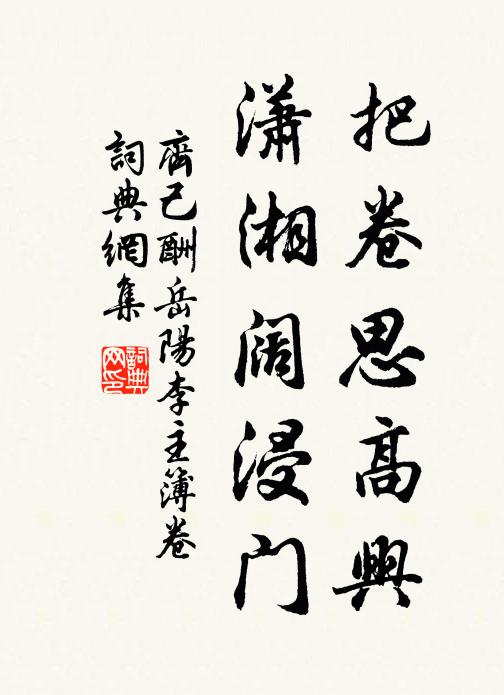 把卷思高興
瀟湘闊浸門
齊己酬岳陽李主簿卷
詞典網集
詞典网印